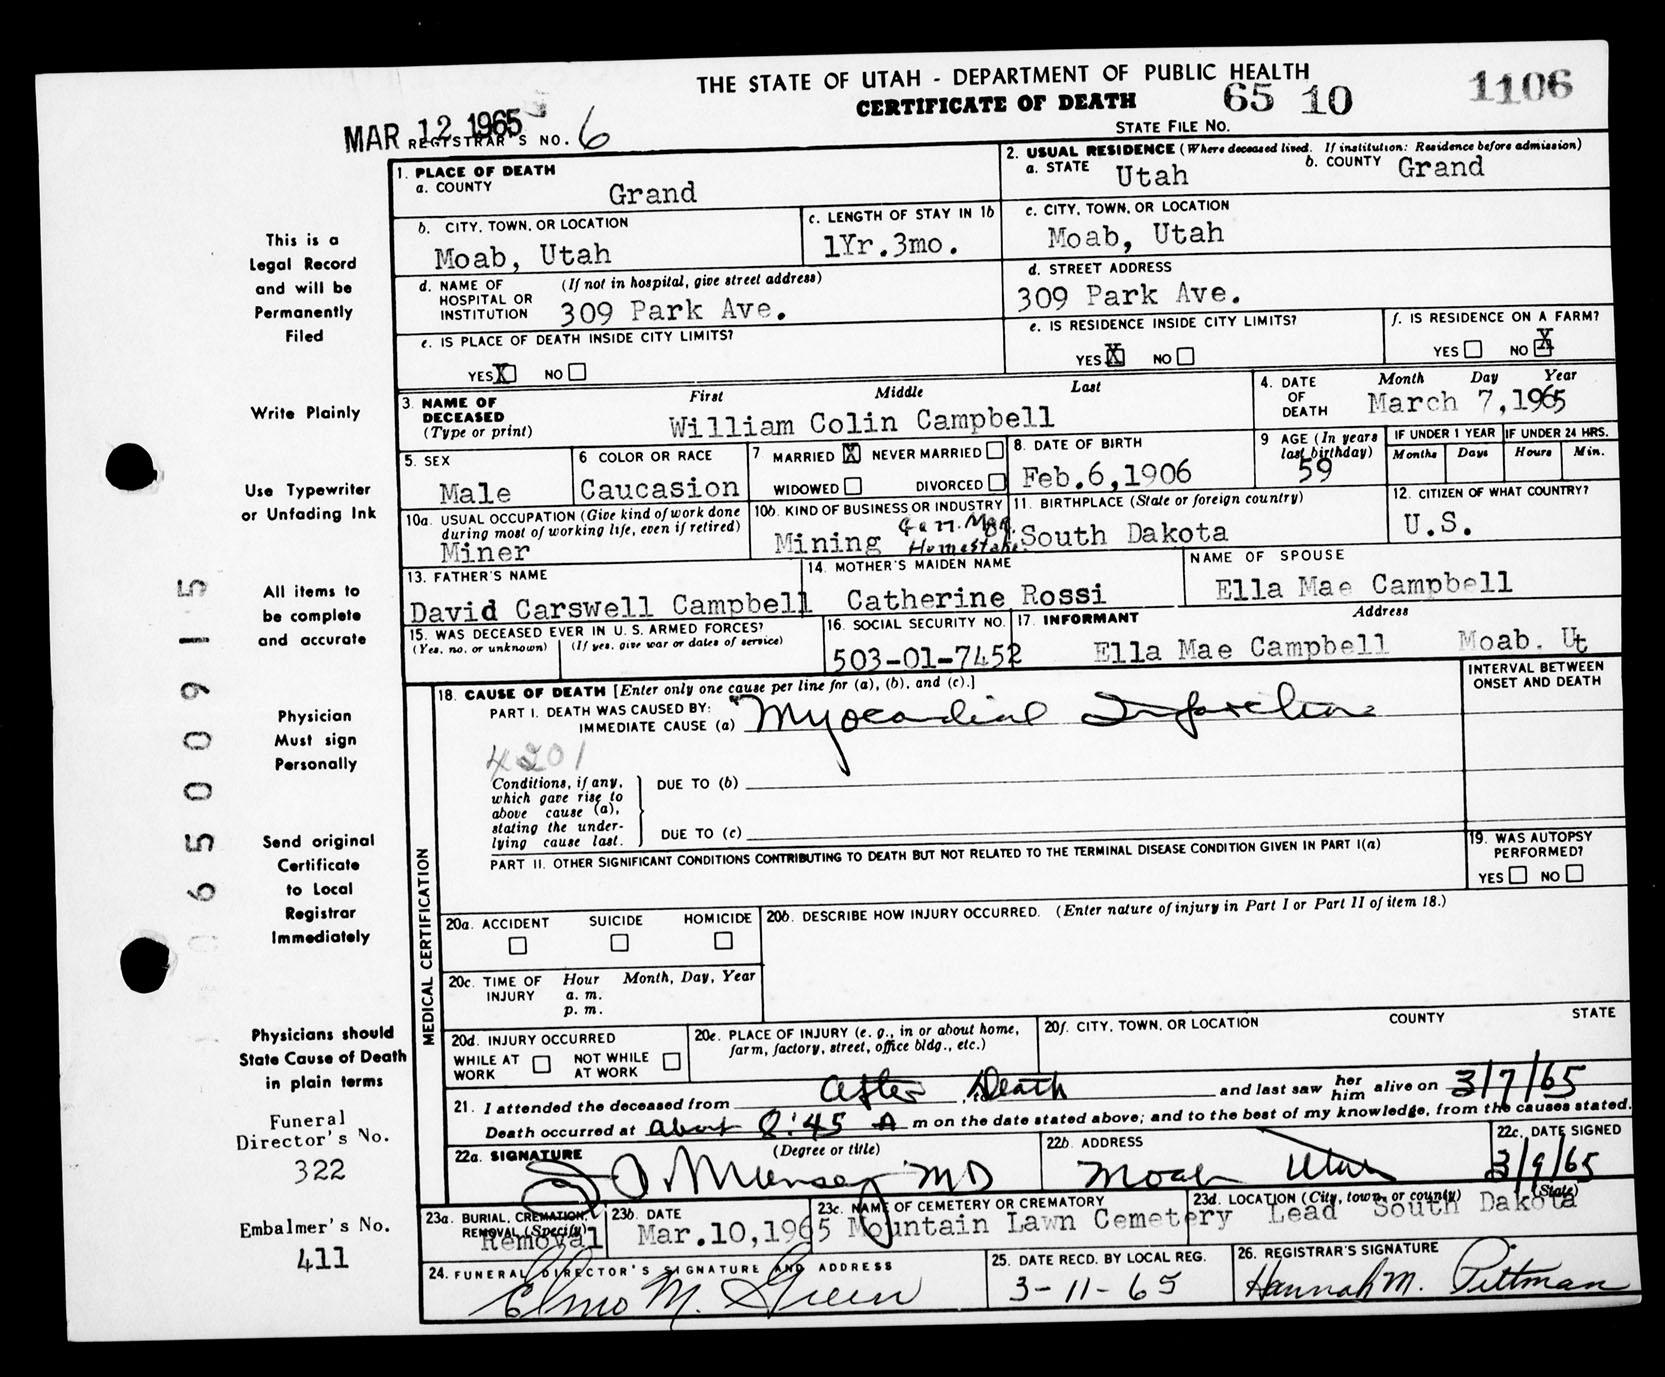 THE STATE OF UTAH - DEPARTMENT OF PUBLIC HEALTH
CERTIFICATE OF DEATH 65 10 1106
STATE FILE NO.
MAR 12 1965
REGISTRAR'S NO. 6
This is a
Legal Record
and will be
Permanently
Filed
Write Plainly
Use Typewriter
or Unfading Ink
All items to
be complete
and accurate
Physician
Must sign
Personally
Send original
Certificate
to Local
Registrar
Immediately
Physicians should
State Cause of Death
in plain terms
Funeral
Director's No.
322
Embalmer's No.
411
0650091 5
1. PLACE OF DEATH
a. COUNTY Grand
2. USUAL RESIDENCE (Where deceased lived. If institution: Residence before admission)
a. STATE Utah b. COUNTY Grand
b. CITY, TOWN, OR LOCATION Moab, Utah
c. LENGTH OF STAY IN 1b 1Yr.3mo.
c. CITY, TOWN, OR LOCATION Moab, Utah
d. NAME OF HOSPITAL OR INSTITUTION (If not in hospital, give street address) 309 Park Ave.
d. STREET ADDRESS 309 Park Ave.
e. IS PLACE OF DEATH INSIDE CITY LIMITS?
YES X NO
e. IS RESIDENCE INSIDE CITY LIMITS?
YES X NO
f. IS RESIDENCE ON A FARM?
YES NO X
3. NAME OF DECEASED (Type or print) First Middle Last
William Colin Campbell
4. DATE OF DEATH Month Day Year
March 7,1965
5. SEX Male
6 COLOR OR RACE Caucasion
7 MARRIED X NEVER MARRIED
WIDOWED DIVORCED
8. DATE OF BIRTH Feb.6,1906
9 AGE (In years last birthday) 59
IF UNDER 1 YEAR Months Days
IF UNDER 24 HRS. Hours Min.
10a. USUAL OCCUPATION (Give kind of work done during most of working life, even if retired)
Miner
10b. KIND OF BUSINESS OR INDUSTRY
Mining Homestake
11. BIRTHPLACE (State or foreign country)
South Dakota
12. CITIZEN OF WHAT COUNTRY?
U.S.
13. FATHER'S NAME
David Carswell Campbell
14. MOTHER'S MAIDEN NAME
Catherine Rossi
NAME OF SPOUSE
Ella Mae Campbell
15. WAS DECEASED EVER IN U. S. ARMED FORCES?
(Yes, no, or unknown) (If yes, give war or dates of service)
16. SOCIAL SECURITY NO.
503-01-7452
17. INFORMANT Address
Ella Mae Campbell Moab. Ut
MEDICAL CERTIFICATION
18. CAUSE OF DEATH [Enter only one cause per line for (a), (b), and (c).]
INTERVAL BETWEEN ONSET AND DEATH
PART I. DEATH WAS CAUSED BY:
IMMEDIATE CAUSE (a) Myocardial Infarction
4201
Conditions, if any,
which gave rise to
above cause (a),
stating the under-
lying cause last.
DUE TO (b)
DUE TO (c)
PART II. OTHER SIGNIFICANT CONDITIONS CONTRIBUTING TO DEATH BUT NOT RELATED TO THE TERMINAL DISEASE CONDITION GIVEN IN PART I(a)
19. WAS AUTOPSY PERFORMED?
YES NO
20a. ACCIDENT SUICIDE HOMICIDE
20b. DESCRIBE HOW INJURY OCCURRED. (Enter nature of injury in Part I or Part II of item 18.)
20c. TIME OF INJURY Hour Month, Day, Year
a. m.
p. m.
20d. INJURY OCCURRED
WHILE AT WORK NOT WHILE AT WORK
20e. PLACE OF INJURY (e. g., in or about home, farm, factory, street, office bldg., etc.)
20f. CITY, TOWN, OR LOCATION COUNTY STATE
21. I attended the deceased from After Death and last saw her him alive on 3/7/65
Death occurred at About 8:45 A m on the date stated above; and to the best of my knowledge, from the causes stated.
22a. SIGNATURE (Degree or title)
MD
22b. ADDRESS
Moab Utah
22c. DATE SIGNED
3/9/65
23a. BURIAL, CREMATION, REMOVAL (Specify)
Removal
23b. DATE
Mar.10,1965
23c. NAME OF CEMETERY OR CREMATORY
Mountain Lawn Cemetery
23d. LOCATION (City, town, or county) (State)
Lead South Dakota
24. FUNERAL DIRECTOR'S SIGNATURE AND ADDRESS
Elmo M. Green
25. DATE RECD. BY LOCAL REG.
3-11-65
26. REGISTRAR'S SIGNATURE
Hannah M. Pittman